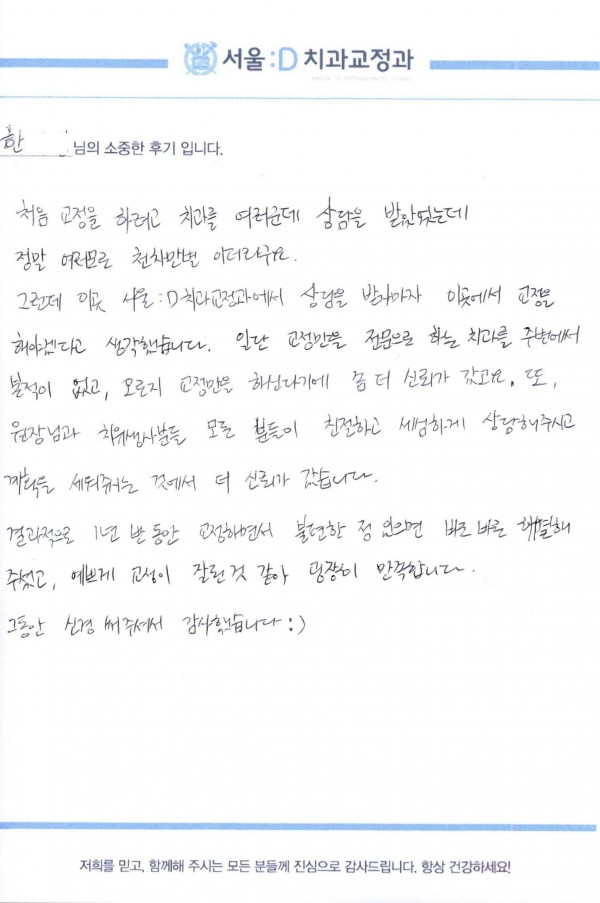 서울:D 치과교정과
한 님의 소중한 후기 입니다.
처음 교정을 하려고 치과를 여러군데 상담을 받았었는데
정말 여러모로 천차만별 이더라구요.
그런데 이곳 서울:D치과교정과에서 상담을 받자마자 이곳에서 교정을
해야겠다고 생각했습니다. 일단 교정만을 전문으로 하는 치과를 주변에서
본적이 없고, 오로지 교정만을 하신다기에 좀 더 신뢰가 갔고요. 또,
원장님과 치위생사분들 모든 분들이 친절하고 세심하게 상담해주시고
계획을 세워주는 것에서 더 신뢰가 갔습니다.
결과적으로 1년 반 동안 교정하면서 불편한 점 있으면 바로 바로 해결해
주셨고, 예쁘게 교정이 잘된 것 같아 굉장히 만족합니다.
그동안 신경 써주셔서 감사했습니다 :)
저희를 믿고, 함께해 주시는 모든 분들께 진심으로 감사드립니다. 항상 건강하세요!